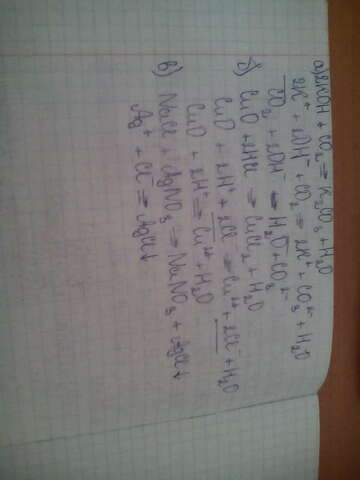 а) 2KOH + CO₂ ⇒ K₂CO₃ + H₂O
2K⁺ + 2OH⁻ + CO₂ ⇒ 2K⁺ + CO₃²⁻ + H₂O
CO₂ + 2OH⁻ ⇒ H₂O + CO₃²⁻
б) CuO + 2HCl ⇒ CuCl₂ + H₂O
CuO + 2H⁺ + 2Cl⁻ ⇒ Cu²⁺ + 2Cl⁻ + H₂O
CuO + 2H⁺ ⇒ Cu²⁺ + H₂O
в) NaCl + AgNO₃ ⇒ NaNO₃ + AgCl↓
Ag⁺ + Cl⁻ ⇒ AgCl↓